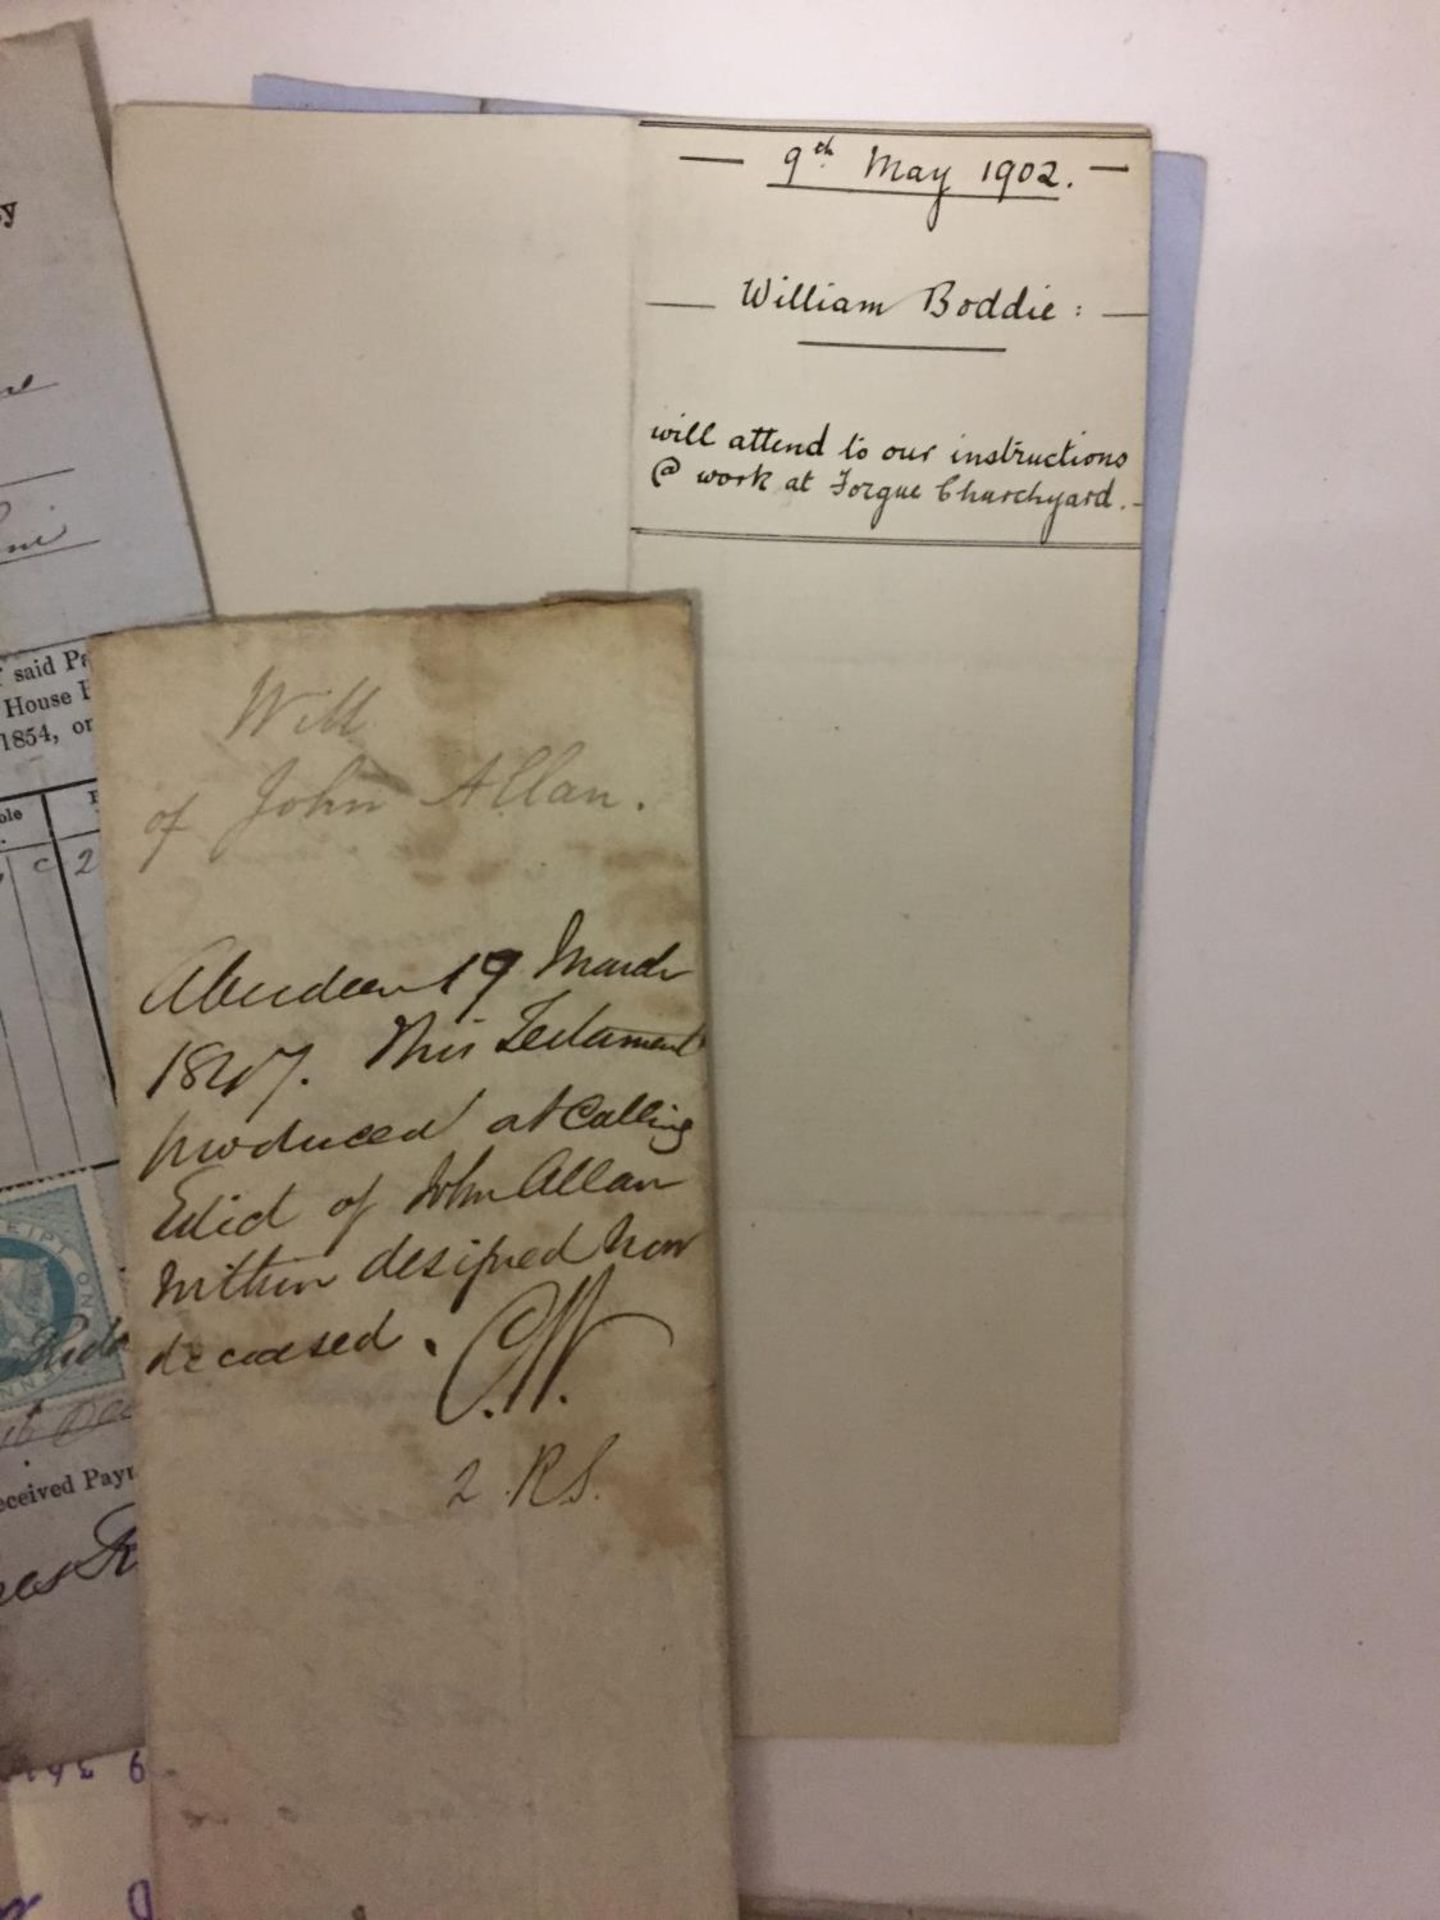 9th May 1902.
William Boddie:
will attend to our instructions
@ work at Forgue Churchyard.
Will
of John Allan.
Aberdeen 19 March
1847. This Testament
produced at Calling
Edict of John Allan
within designed now
deceased.
2 R.S.
said
House
1854, or
c 2
EIPT ON
eceived Payr